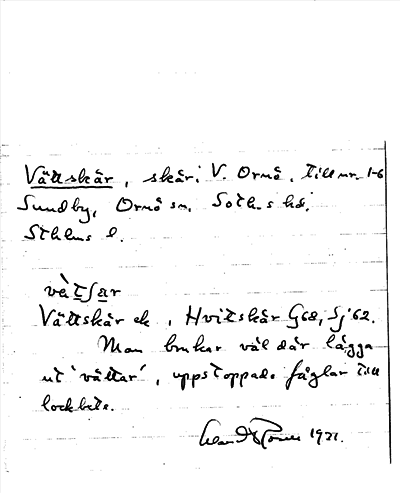 Vättskär, skär i V. Ornö, till nr. 1-6
Sundby, Ornö sn. Soth.s hd.
Sthlms l.
vètʃar
Vättskär ek, Hvitskär G68, Sj 62.
Man brukar väl där lägga
ut 'vättar', uppstoppade fåglar till
lockbete.
1921.